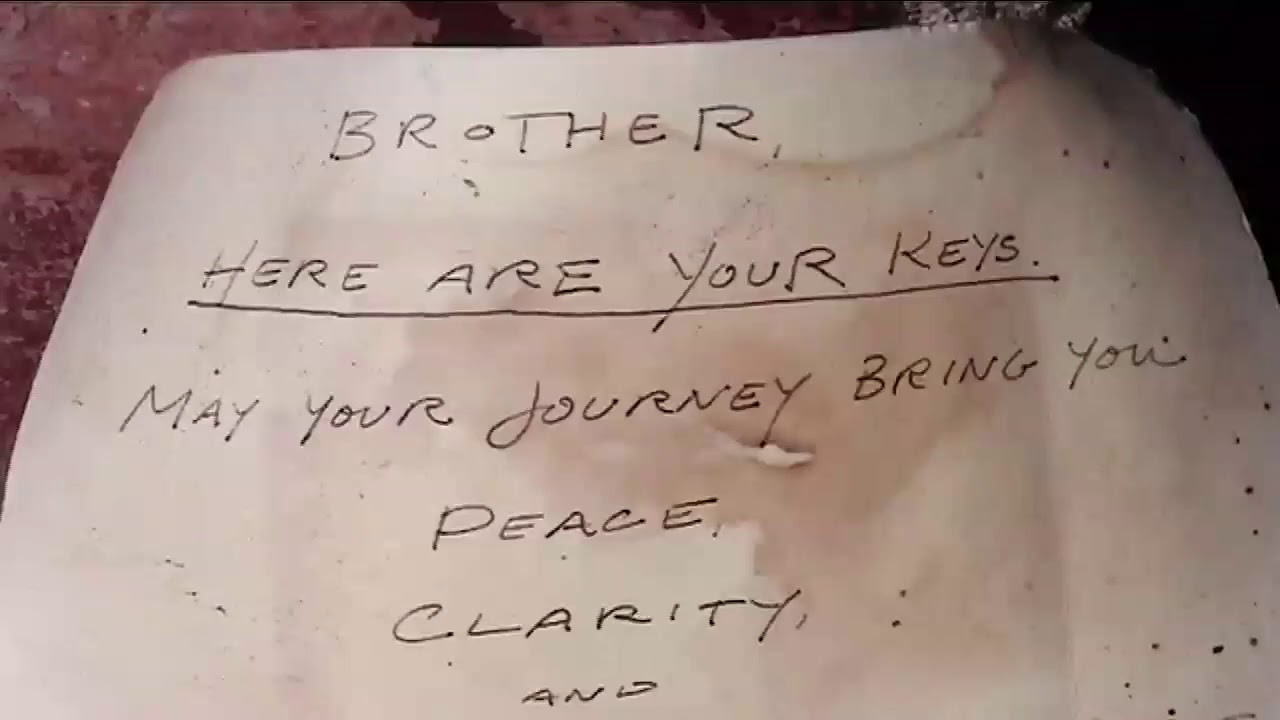 BROTHER,
HERE ARE YOUR KEYS.
MAY YOUR JOURNEY BRING YOU
PEACE,
CLARITY,
AND